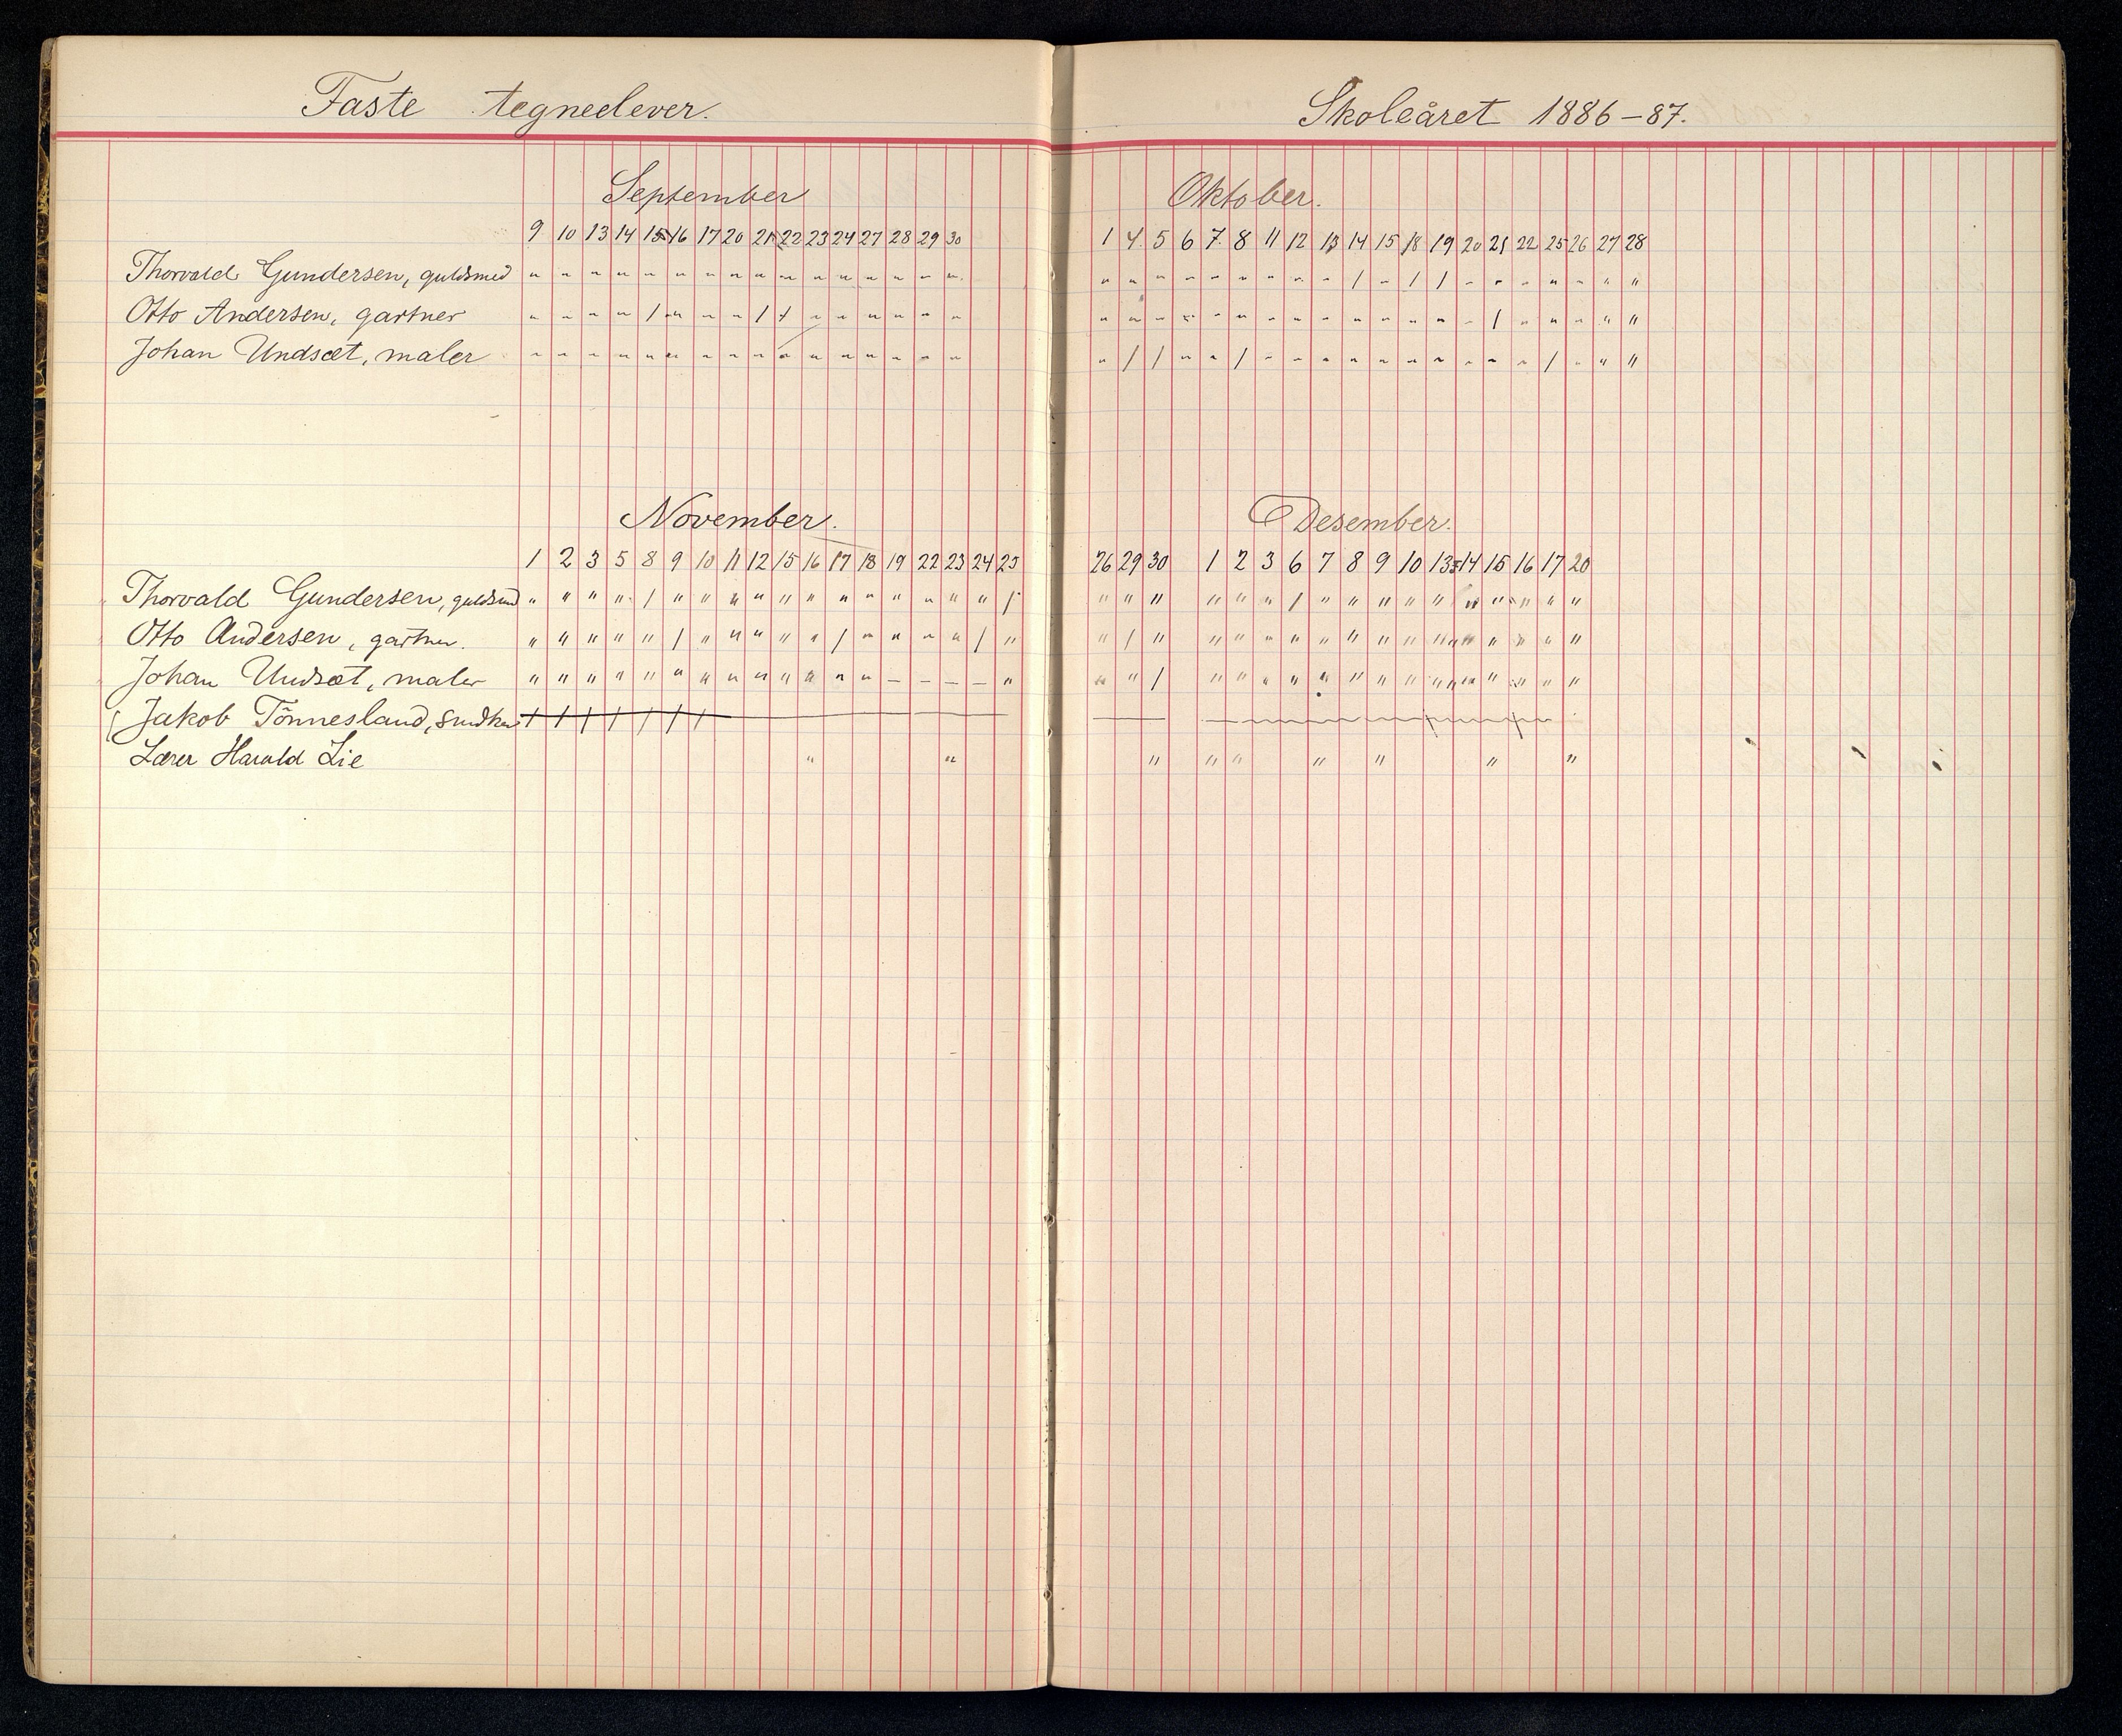 Faste tegneelever.
September
9 10 13 14 15 16 17 20 21 22 23 24 27 28 29 30
Thorvald Gundersen, guldsmed " " " " " " " " " " " " " " " "
Otto Andersen, gartner " " " " / " " " / / " " " " " "
Johan Undsæt, maler " " " " " " " " " " " " " " " "
November.
1 2 3 5 8 9 10 11 12 15 16 17 18 19 22 23 24 25
Thorvald Gundersen, guldsmd " " " " / " " " " " " " " " " " " /
Otto Andersen, gartner. " " " " " / " " " " " / " " " " / "
Johan Undsæt, maler " " " " " " " " " " " " " — — — — "
Jakob Tönnesland,
Lærer Harald Lie " "
Skoleåret 1886-87.
Oktober.
1 4 5 6 7 8 11 12 13 14 15 18 19 20 21 22 25 26 27 28
" " " " " " " " " / " / / " " " " " " "
" " " " " " " " " " " " " " / " " " " "
" / / " " / " " " " " " " " " " / " " "
Desember.
26 29 30 1 2 3 6 7 8 9 10 13 14 15 16 17 20
" " " " " " / " " " " " " " " " "
" / " " " " " " " " " " " " " " "
" " / " " " " " " " " " " " " " "
" " " " " " "